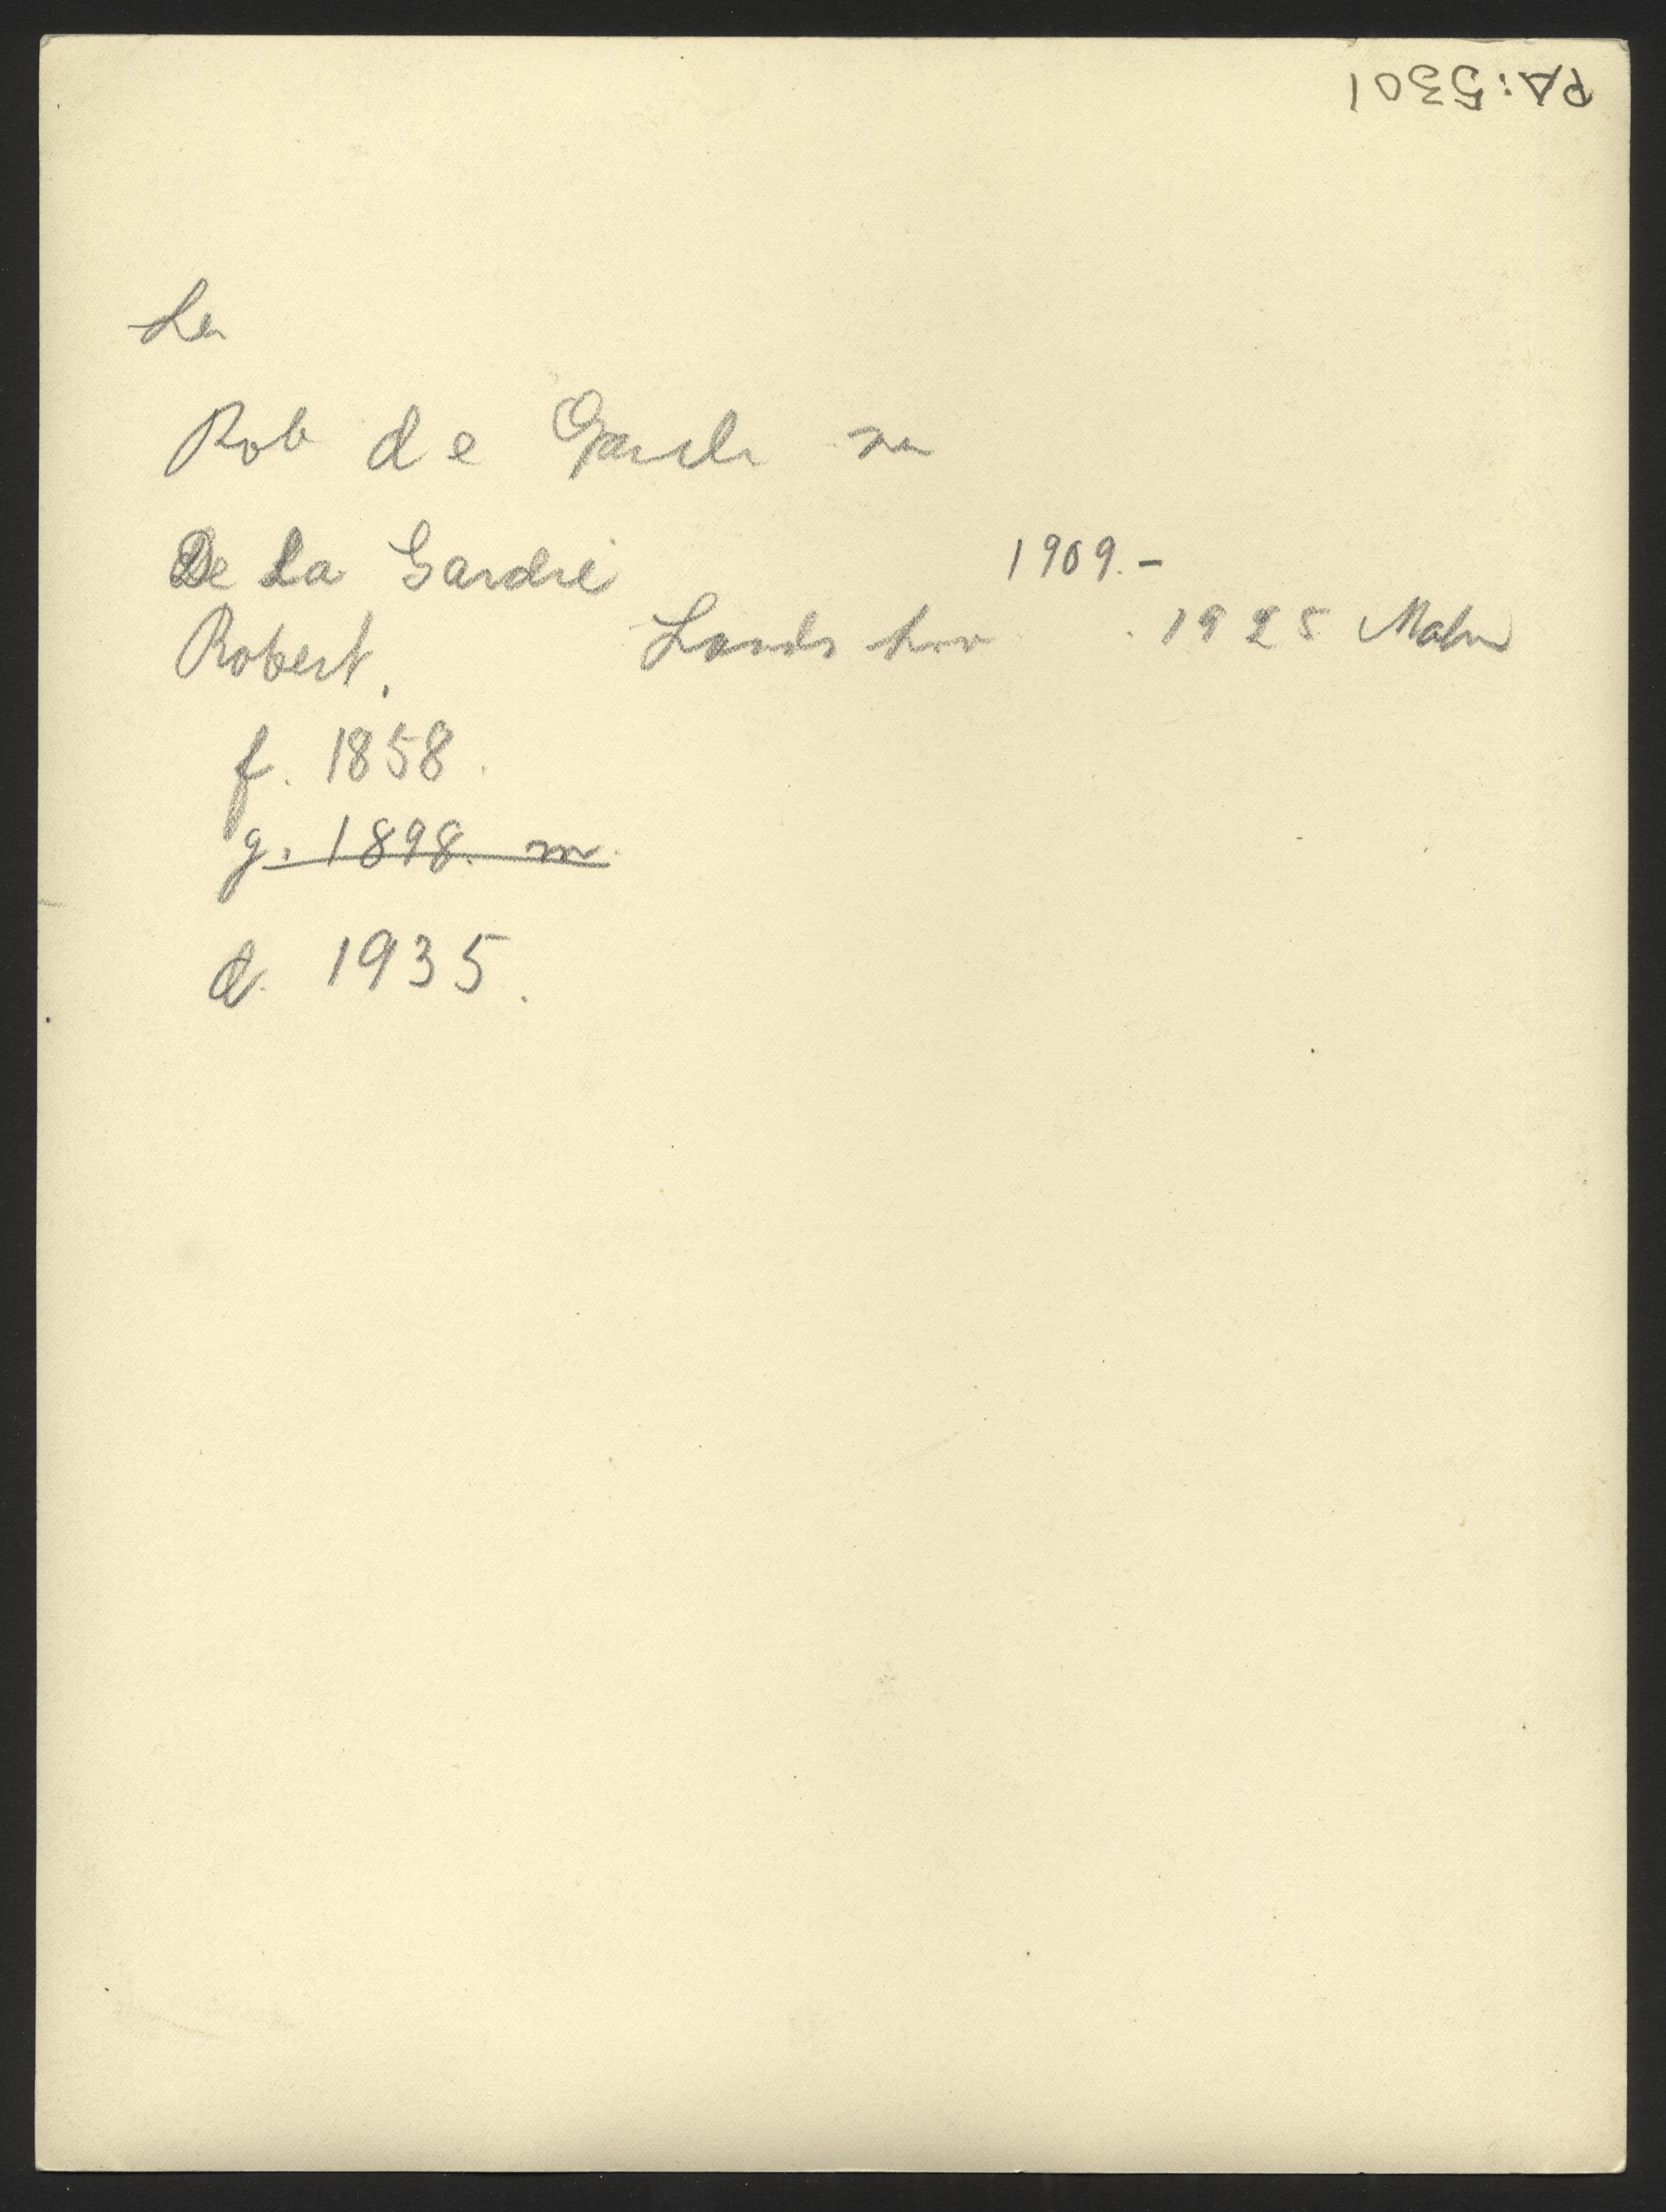 PA:5301
La
Rob de Gardi
De La Gardie 1909.-
Robert. Lands hov 1925 Malm
f. 1858.
g. 1898. m.
d. 1935.